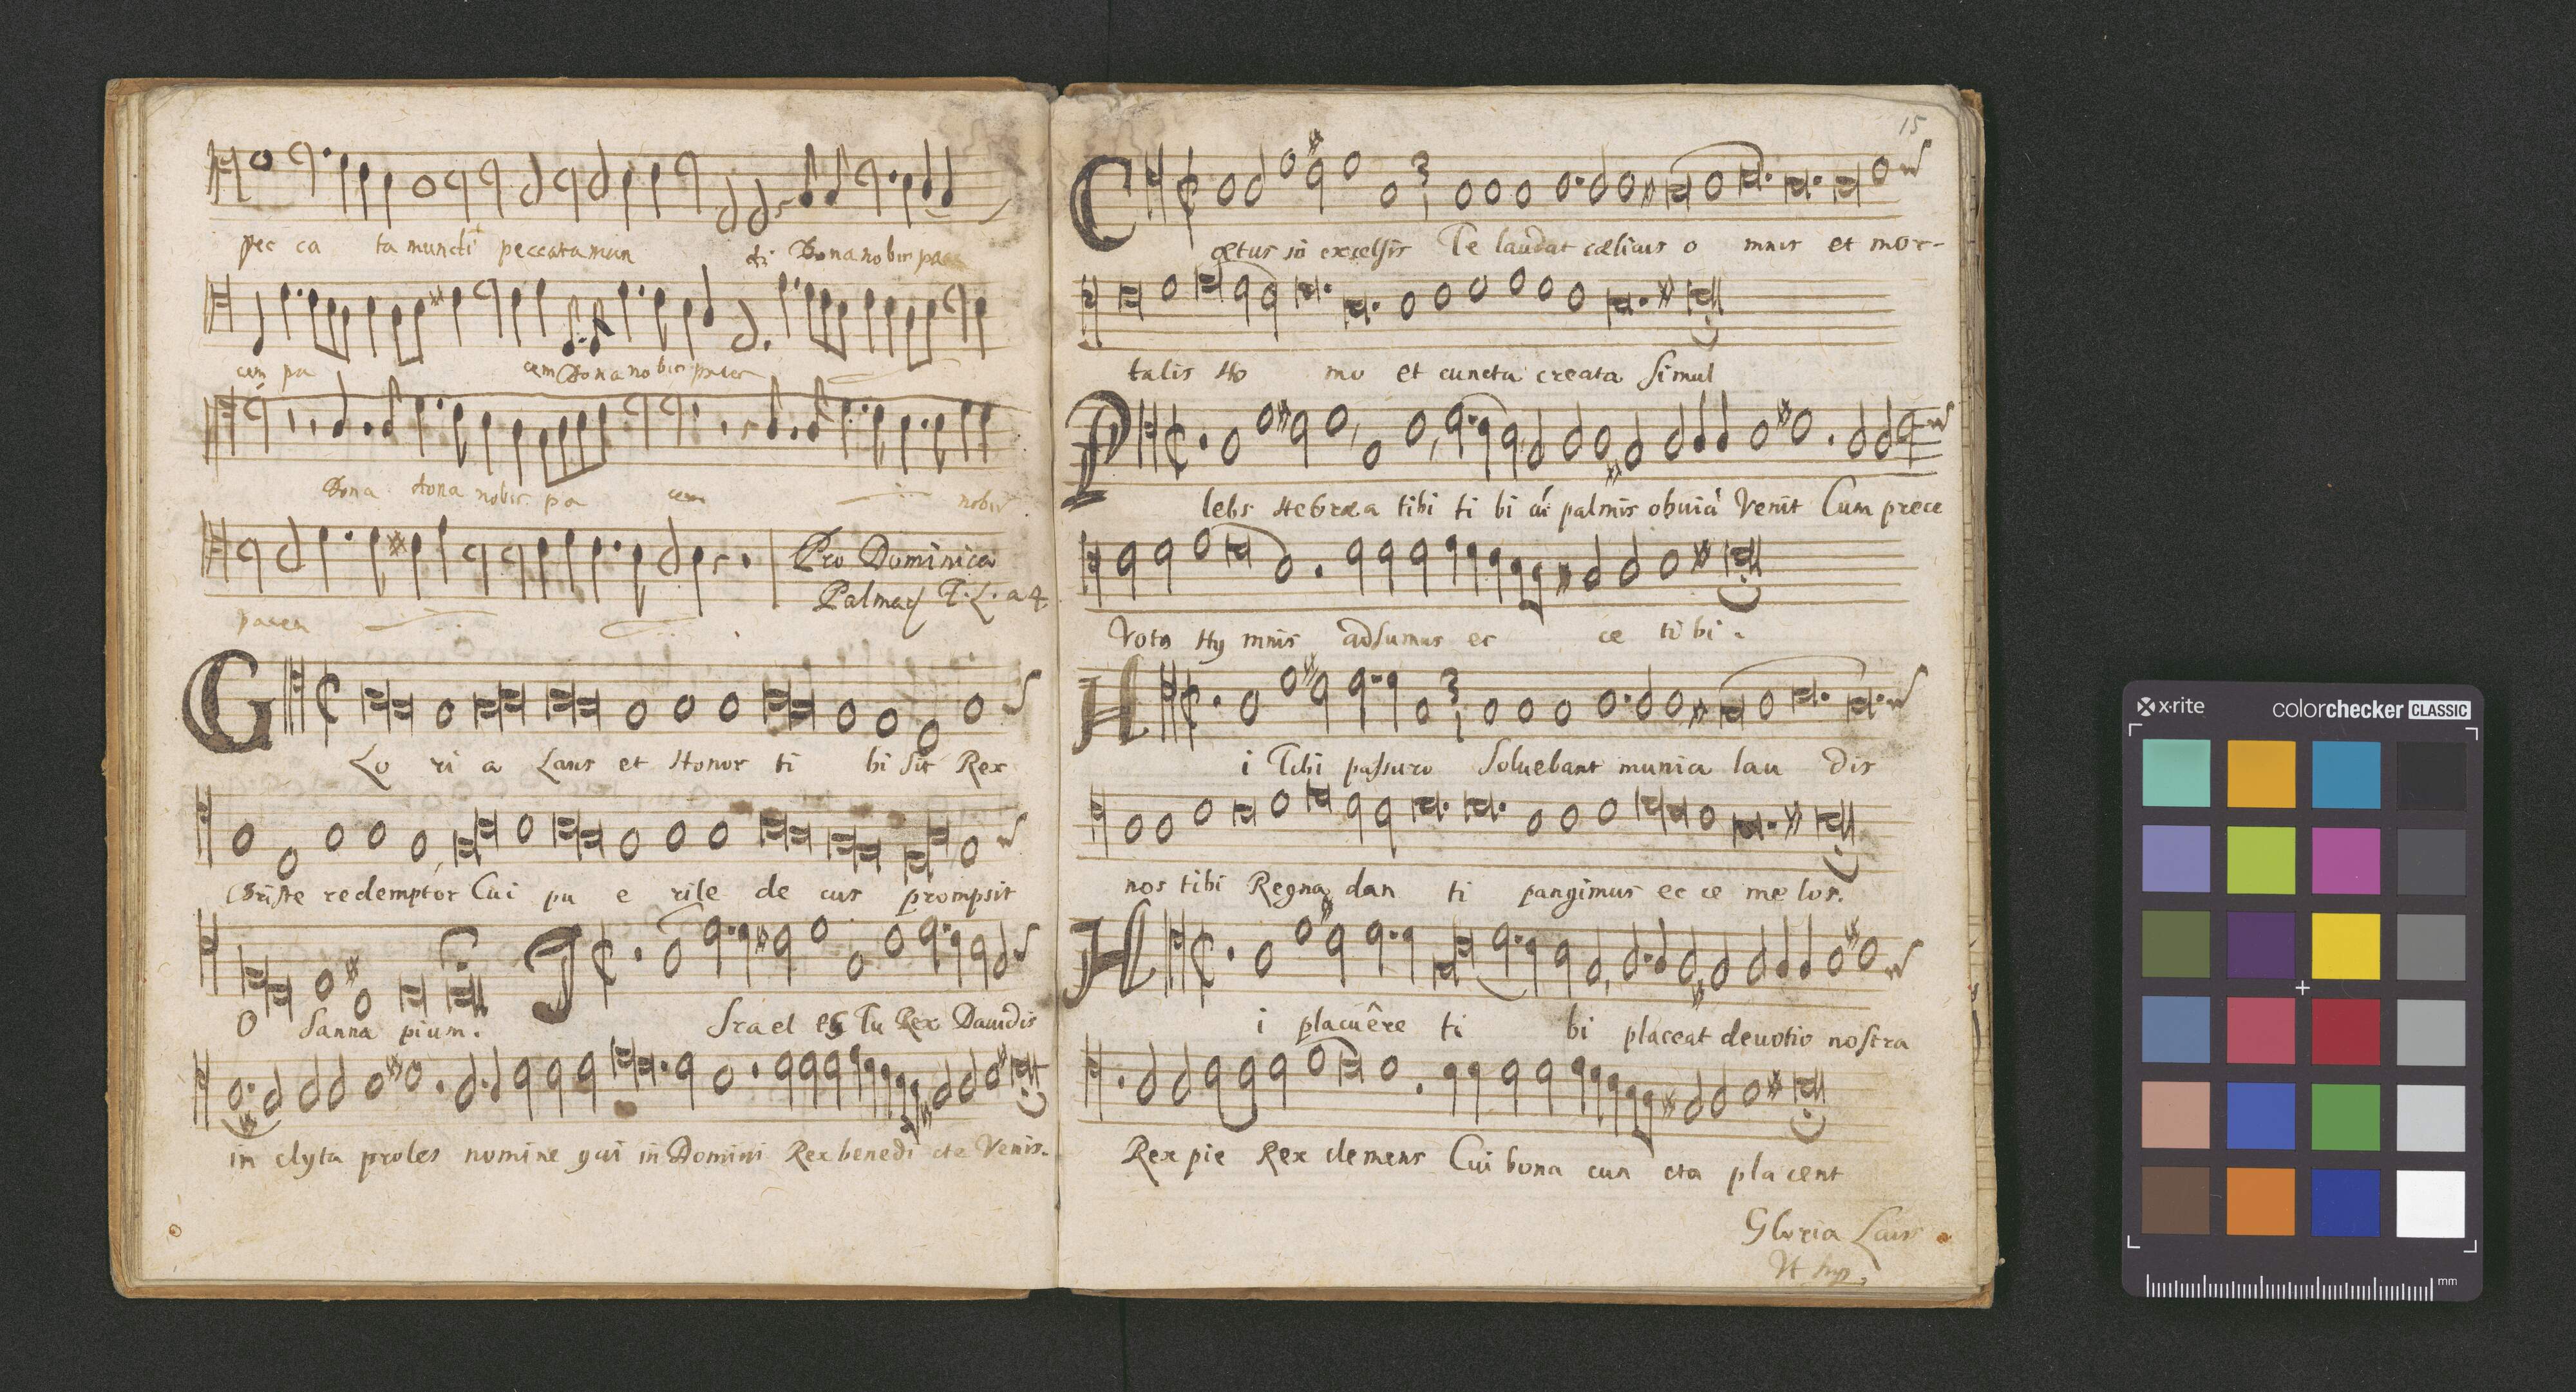 pec ca ta mundi peccata mun di Dona nobis pace
cem pa cem Dona nobis pacer
Dona dona nobis pa cem nobis
Pro Dominica
Palmar T. L. a 4.
pacem
GLo ri a Laus et Honor ti bi sit Rex
Christe redemptor Cui pu e rile de cus prompsit
O sanna pium. ISrael es Tu Rex Davidis
in clyta proles nomine qui in Domini Rex benedi cte Venis.
15
Cœtus in excelsis Te laudat cælicus o mnis et mor-
talis Ho mo et cuncta creata simul
Plebs Hebræa tibi ti bi cú palmis obuia Venit Cum prece
Voto Hy mnis adsumus ec ce ti bi.
Hi Tibi passuro Soluebant munia lau dis
nos tibi Regna dan ti pangimus ec ce me los.
Hi placuêre ti bi placeat deuotio nostra
Rex pie Rex clemens Cui bona cun cta pla cent
Gloria Laus
Vt sup.
x-rite colorchecker CLASSIC
mm